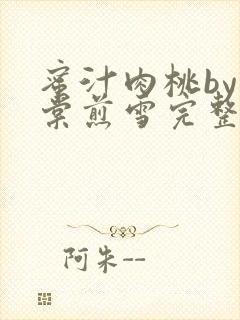 蜜汁肉桃by
棠煎雪完整
阿朱--